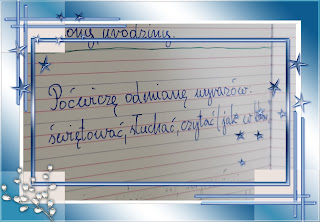 urodziny.
Poćwiczę odmianę wyrazów:
świętować, słuchać, czytać (jak w